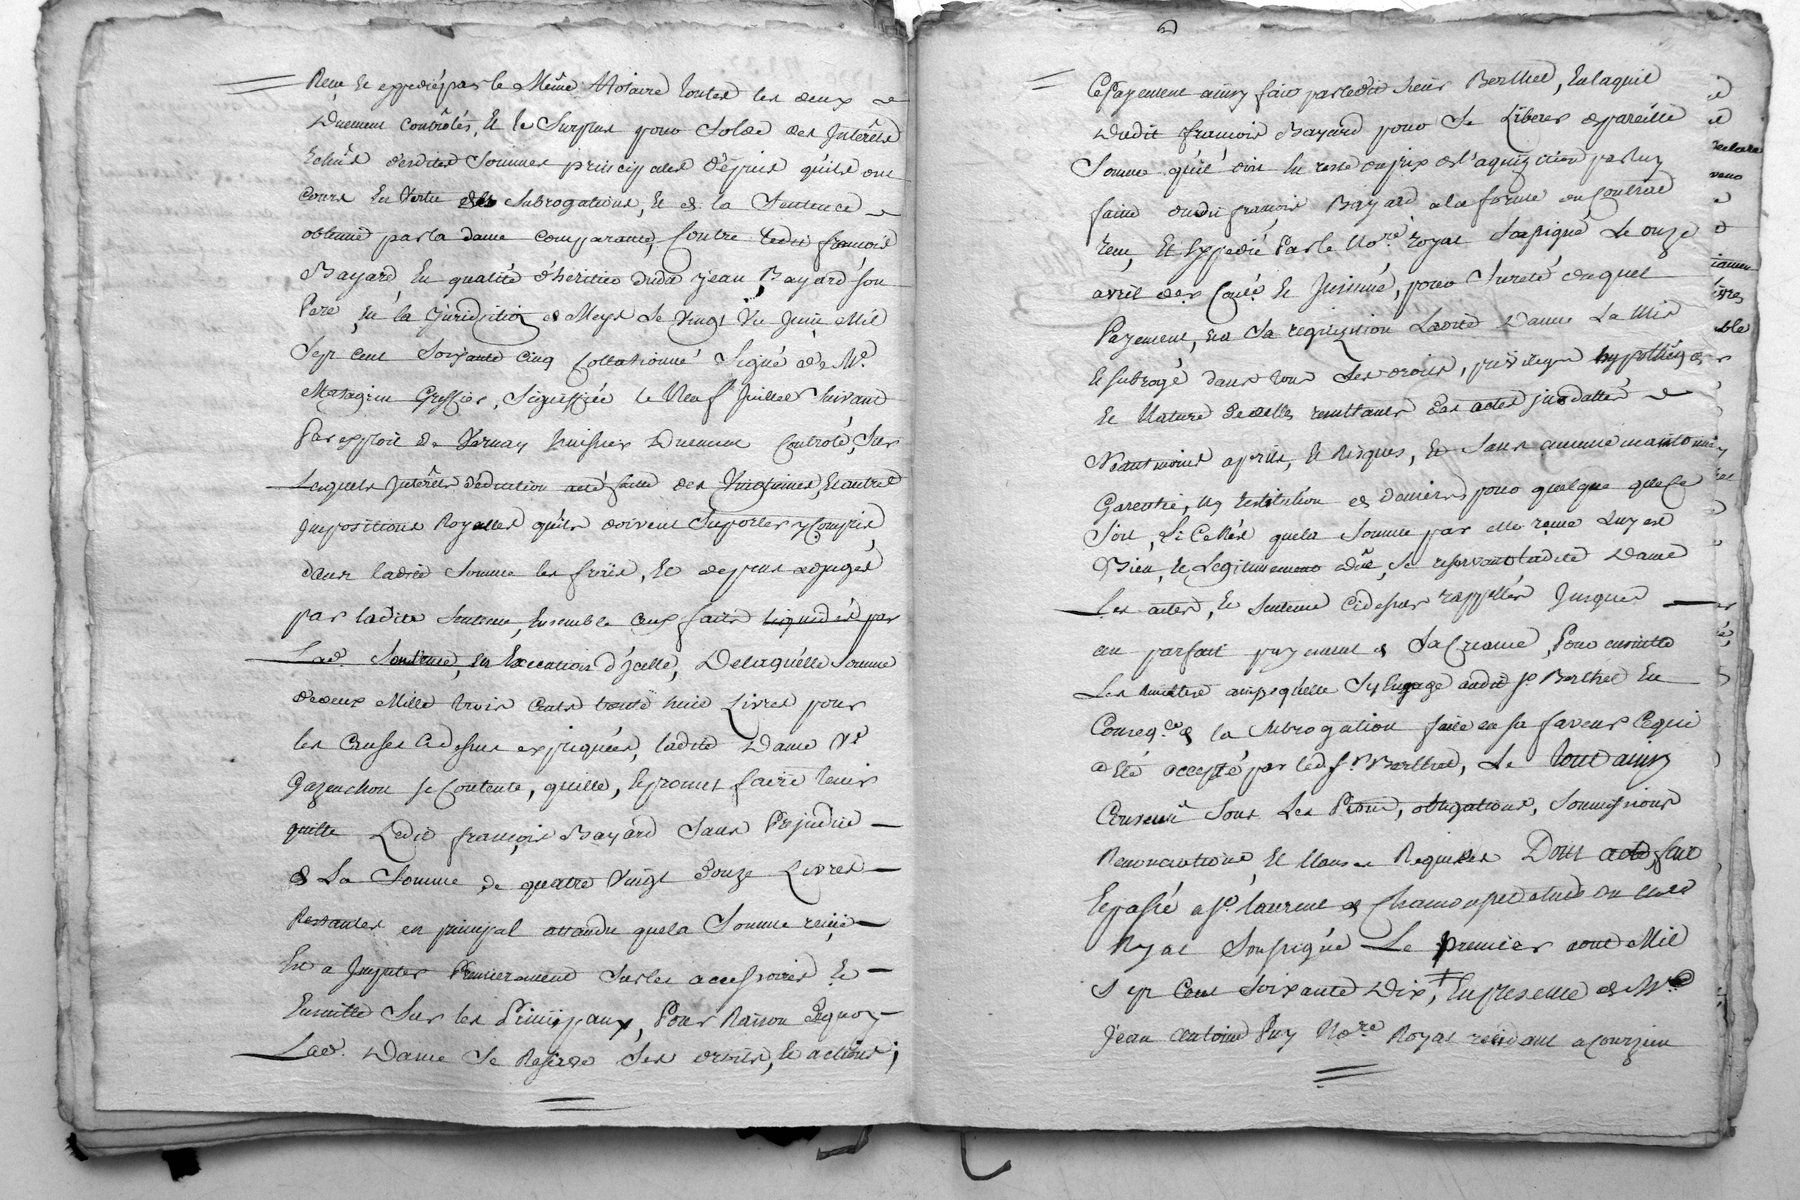 Reçu Et expedié par le Même Notaire toutes les deux
Duement Contrôlés, Et le Surplus pour Solde des Intérêts
Echus desdites Sommes principales depuis qu'ils ont
cours En Vertu des Subrogations, Et de la Sentence
obtenue par la dame comparante, Contre ledit françois
Bayard En qualité d'héritier dudit Jean Bayard son
Pere, En la Juridiction de Meys Le Vingt Juin Mil
Sept cent Soixante Cinq Collationné Signé de Me.
Matagrin Greffier, Signiffiée le Neuf Juillet Suivant
Par exploit de Vernay huissier Duement Contrôlé, Sur
Lesquels Interêts déduction a été faite des Vingtiemes, Et autres
Impositions Royalles qu'ils doivent Suporter, y Compris,
dans ladite Somme les frais, Et depens adjugés
par ladite Sentence, Ensemble Ceux faits liquidés par
Lad. Sentence, En Execution d'ycelle, De laquelle Somme
de deux Mille trois Cents trente huit Livres pour
les Causes Cidessus expliquées, ladite Dame Ve
Gazanchon se Contente, quitte, Et promet faire tenir
quitte Ledit françois Bayard Sans Préjudice
de La Somme de quatre Vingt douze Livres
Restantes en principal attandu que la Somme reçüe
Est a Imputer Premierement Sur les accessoires Et
Ensuitte Sur les Principaux, Pour Raison de quoy
Lad. Dame Se Reserve Ses droits, Et actions;
Ce Payement ainsy fait par ledit Sieur Berthet, En laquit
Dudit francois Bayard pour Se Liberer de pareille
Somme qu'il doit En reste du prix de l'aquizition par luy
faitte dudit françois Bayard a la forme du Contrat
recu, Et Expedié Par le Nore. royal Soussigné Le onze
avril der. Conlé. Et Insinué, pour Sureté duquel
Payement, Et a Sa requizition Ladite Dame La Mis
Et subrogé dans tous Ses droits, privileges hypothèques
Et Nature de dettes resultants des actes jusdattés
Neantmoins a perils, Et Risques, Et Sans aucune maintenüe
Garentie, ny restitution de deniers pour quelque cause que Ce
Soit, Si Ce N'est que la Somme par elle reçue Luy est
Bien, Et Legitimement düe, Se reservant ladite Dame
Les actes, Et Sentence Cidessus rappellés Jusques
au parfait payement de Sa Creance, Pour ensuitte
Les Remettre ainsy qu'elle S'y Engage audit Sr. Berthet En
Conseqce. de la Subrogation faite en sa faveur Ce qui
a Eté accepté par led. Sr. Berthet, Le tout ainsy
Convenu Sous Les Peines, obligations, Soumissions
Renonciations, Et Clauses Requises Dont acte, fait
Et passé a St. laurent de Chamousset Etude du Nore
Royal Soussigné Le premier aout Mil
Sept Cent Soixante Dix, En presence de Me
Jean Antoine Puy Nore. Royal residant a Courzieu